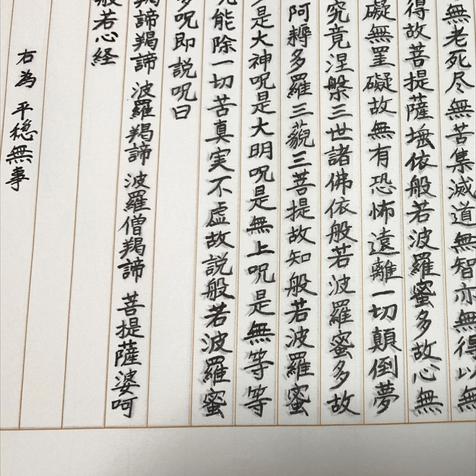 無老死尽無苦集滅道無智亦無得以無
得故菩提薩埵依般若波羅蜜多故心無
礙無罣礙故無有恐怖遠離一切顛倒夢
究竟涅槃三世諸佛依般若波羅蜜多故
阿耨多羅三藐三菩提故知般若波羅蜜
是大神呪是大明呪是無上呪是無等等
呪能除一切苦真実不虚故説般若波羅蜜
多呪即説呪曰
羯諦羯諦 波羅羯諦 波羅僧羯諦 菩提薩婆呵
般若心経
右為 平穏無事